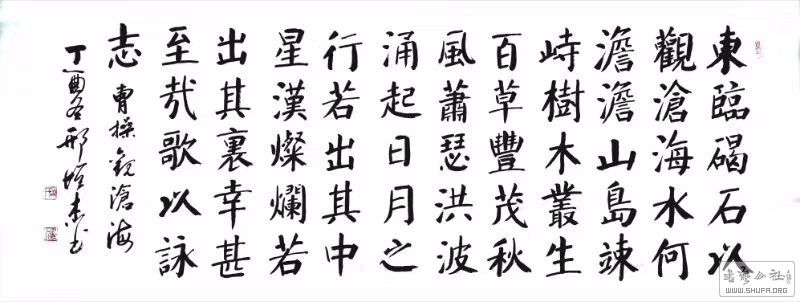 東臨碣石以
觀滄海水何
澹澹山島竦
峙樹木叢生
百草豐茂秋
風蕭瑟洪波
涌起日月之
行若出其中
星漢燦爛若
出其裏幸甚
至哉歌以詠
志
曹操觀滄海
丁酉冬邢
WWW.SHUFA.ORG